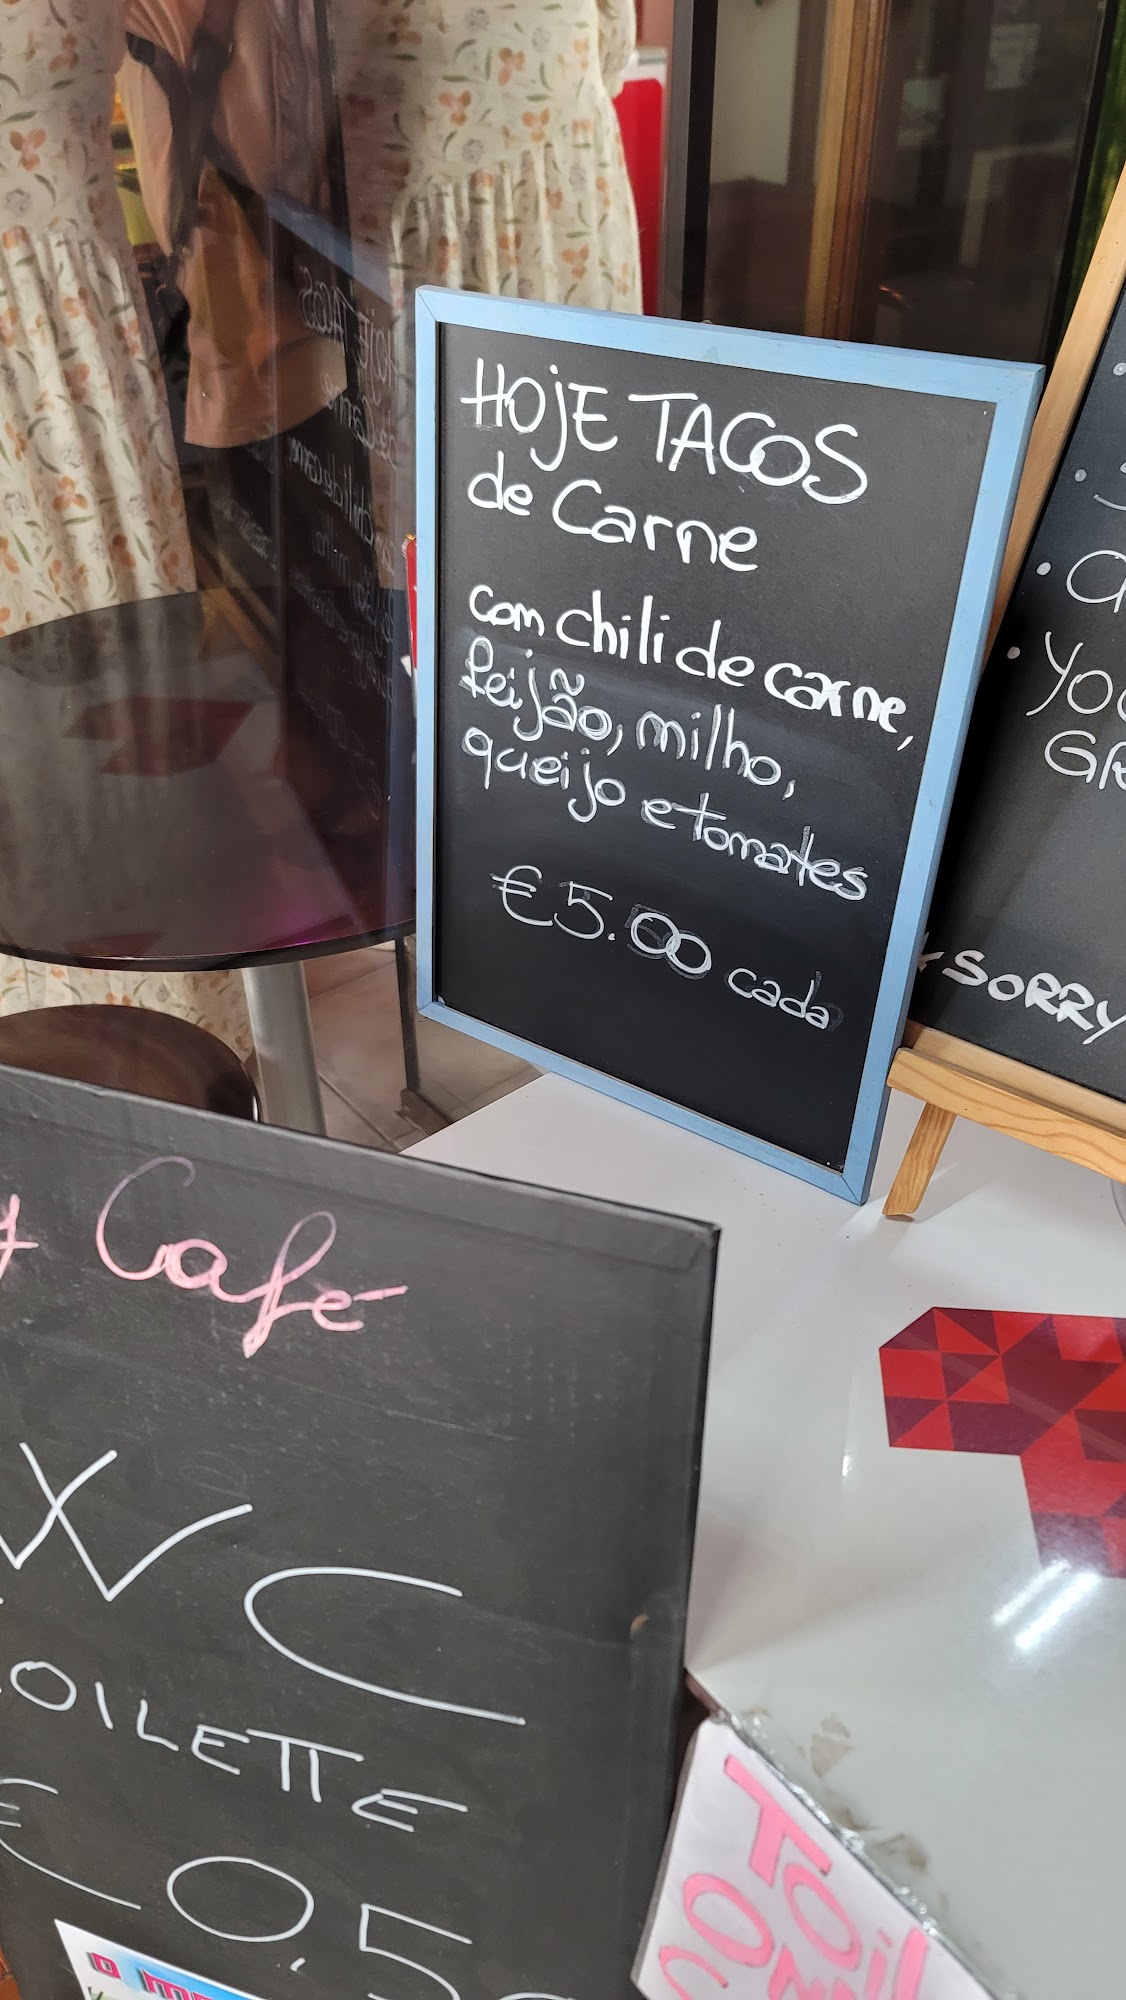 HOJE TACOS
de Carne
com chili de carne,
feijão, milho,
queijo e tomates
€5.00 cada
SORRY
Café
WC
TOILETTE
€0,5